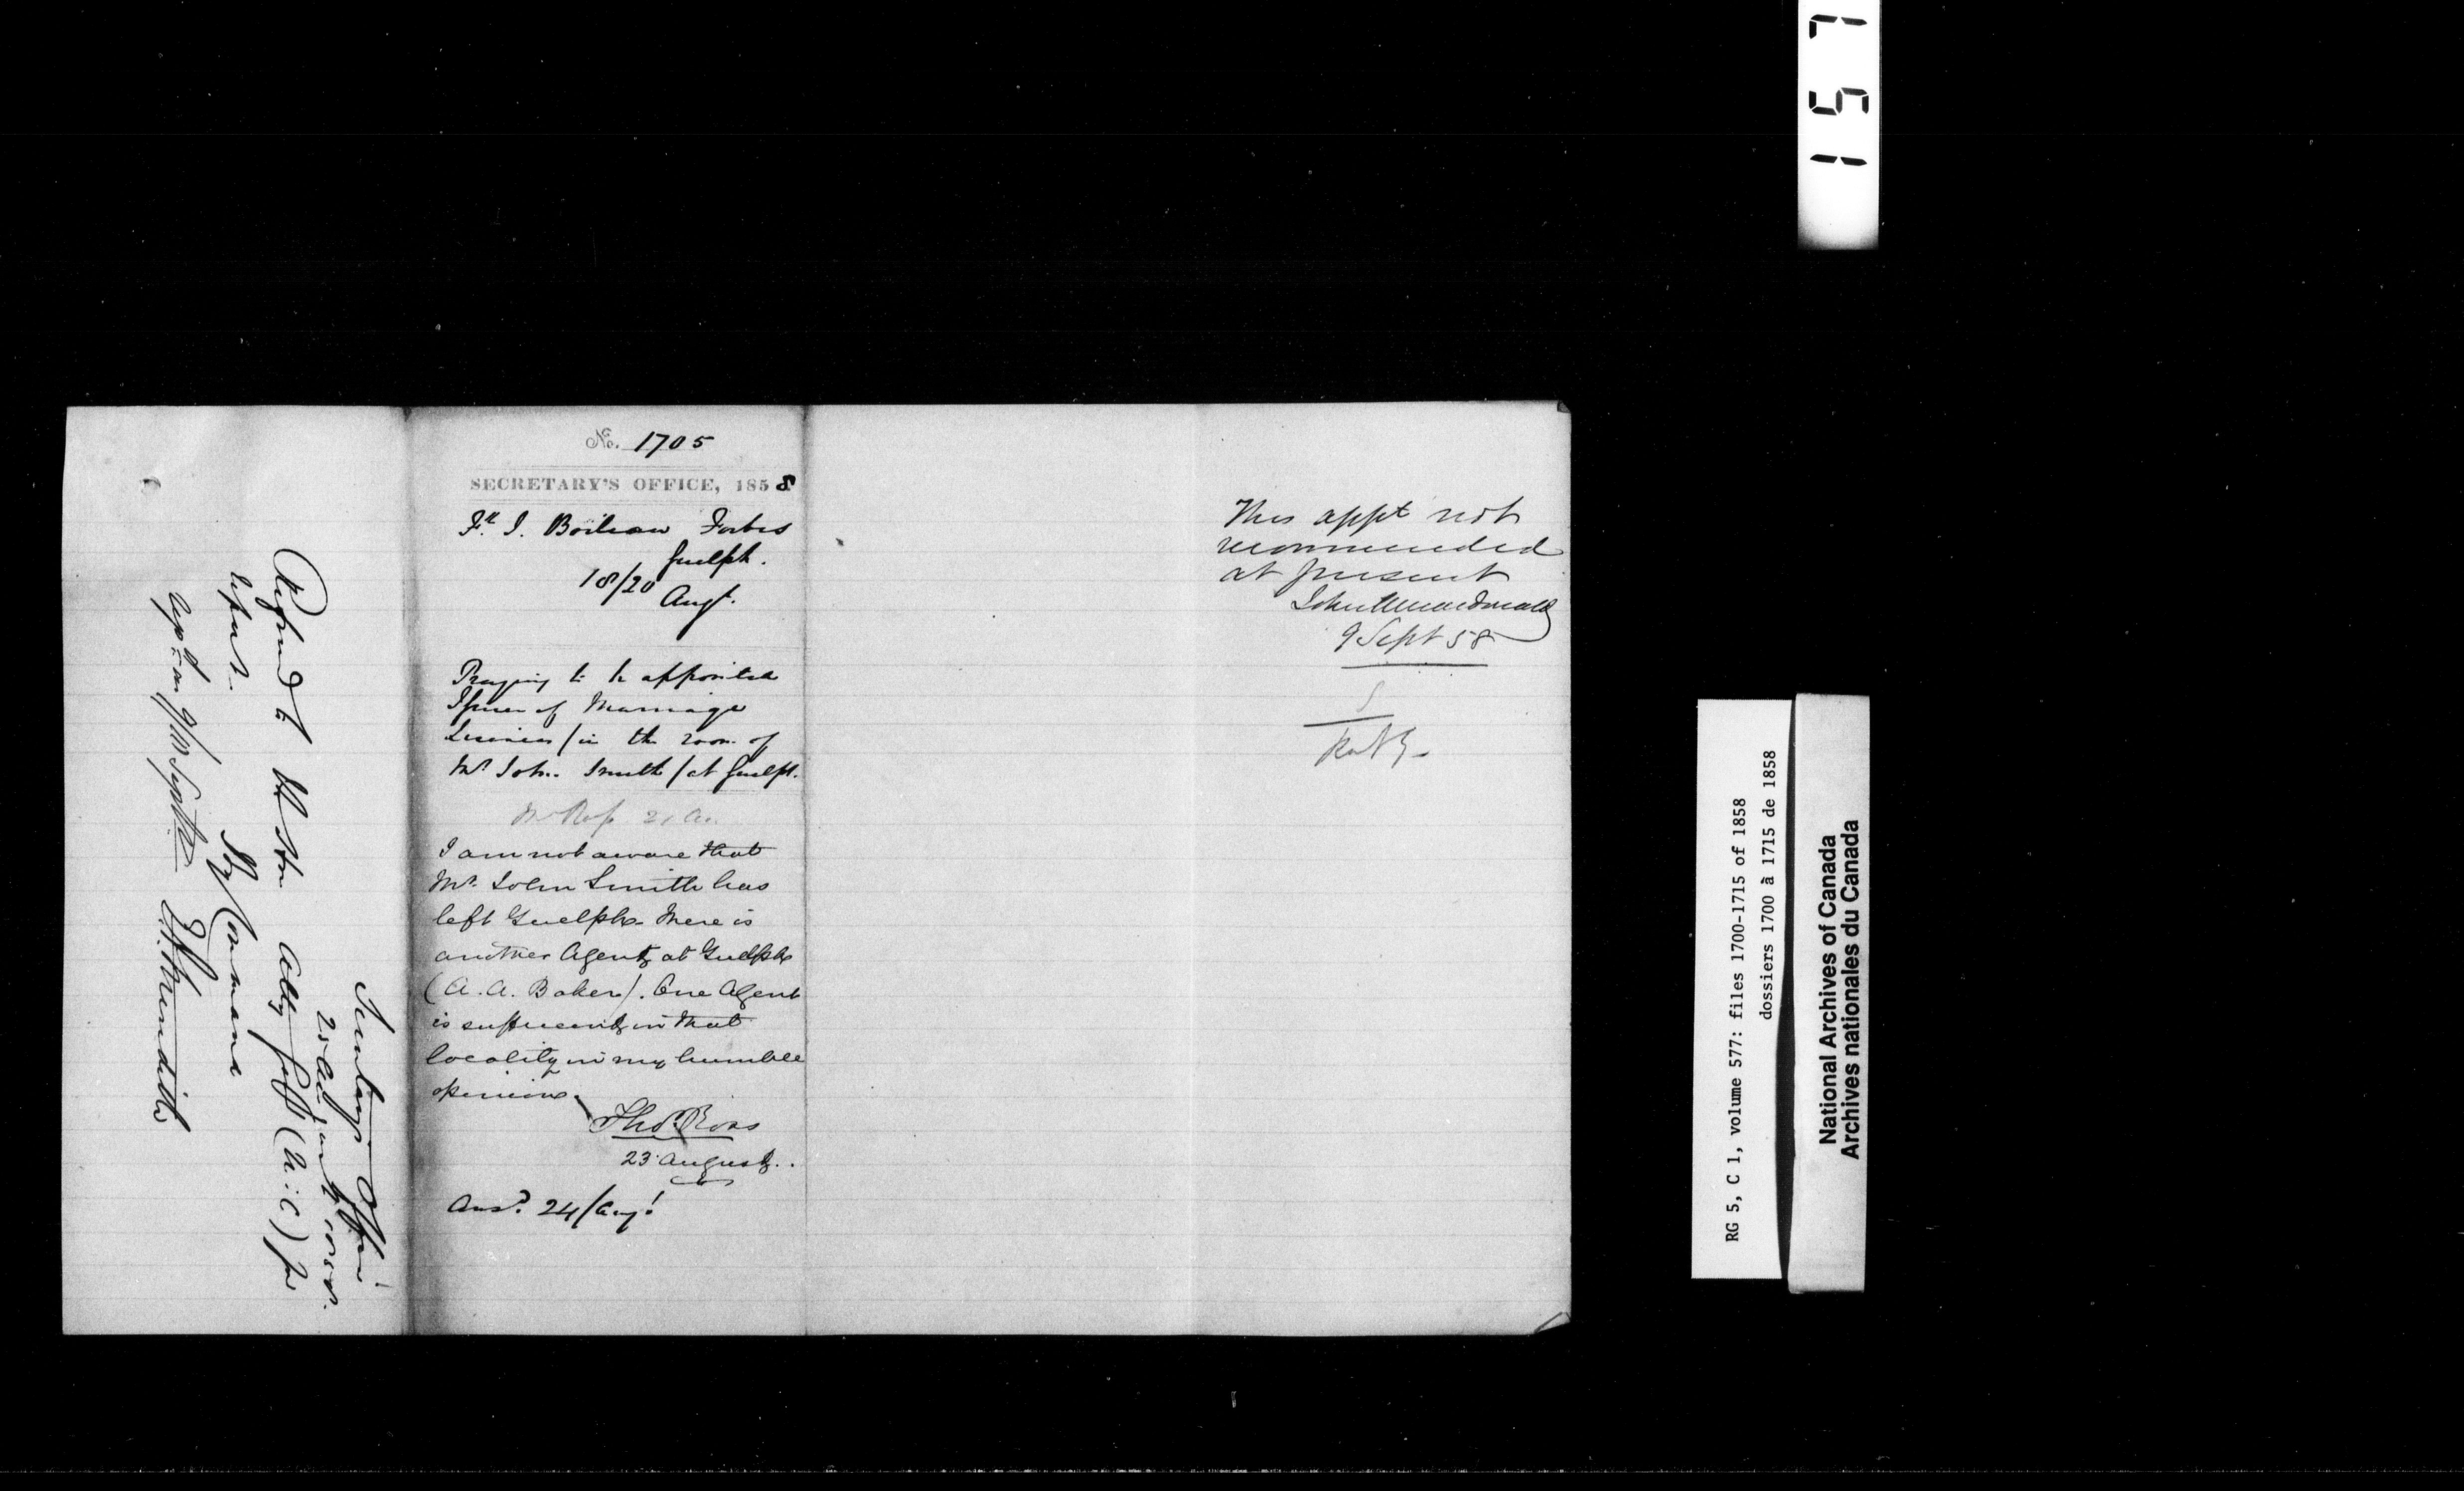 157
No. 1705
SECRETARY'S OFFICE, 1858
Fk. I. Boileau Forbes
Guelph.
18/20 Augt.
Praying to be appointed
Issuer of Marriage
Licenses / in the room of
Mr John Smith / at Guelph.
Mr Ross 21 Au.
I am not aware that
Mr. John Smith has
left Guelph. There is
another Agent, at Guelph
(A. A. Baker). One Agent
is sufficient, in that
locality in my humble
opinion.
Thos. Ross
23 August.
Ansd. 24/Augt
Secretary's Office
25th August, 1858.
Referred to the Hon Atty Genl (U.C) for
report.
By Command
E A Meredith
This appt not
recommended
at present
John A Macdonald
9 Sept 58
RG 5, C 1, volume 577: files 1700-1715 of 1858
dossiers 1700 à 1715 de 1858
National Archives of Canada
Archives nationales du Canada